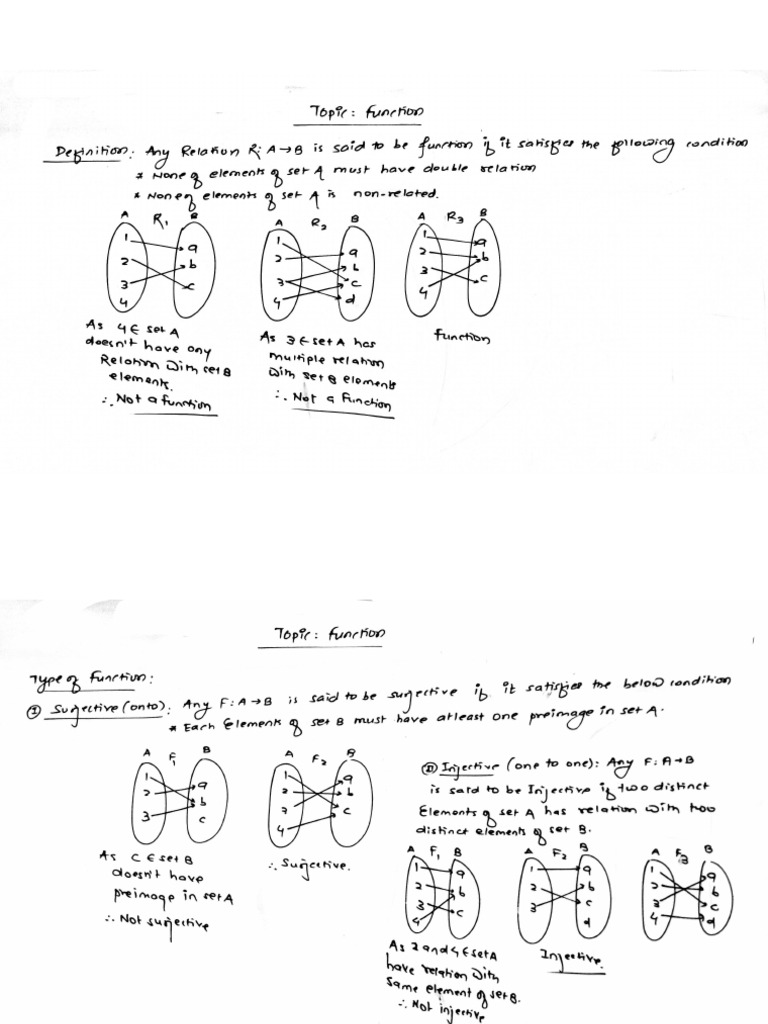 Topic: Function
Definition: Any Relation R: A→B is said to be function if it satisfies the following condition
* None of elements of set A must have double relation
* None of elements of set A is non-related.
A R1 B
1 2 3 4
a b c
A R2 B
1 2 3 4
a b c d
A R3 B
1 2 3 4
a b c
As 4 ∈ set A
doesn't have any
Relation with set B
elements.
∴ Not a function
As 3 ∈ set A has
multiple relation
with set B elements
∴ Not a Function
function
Topic: Function
Type of Function:
① Surjective (onto): Any F: A→B is said to be surjective if it satisfies the below condition
* Each Elements of set B must have atleast one preimage in set A.
A F1 B
1 2 3
a b c
As C ∈ set B
doesn't have
preimage in set A
∴ Not surjective
A F2 B
1 2 3 4
a b c
∴ Surjective.
② Injective (one to one): Any F: A→B
is said to be Injective if two distinct
Elements of set A has relation with two
distinct elements of set B.
A F1 B
1 2 3 4
a b c
As 2 and 4 ∈ set A
have relation with
same element of set B.
∴ Not injective
A F2 B
1 2 3
a b c d
A F3 B
1 2 3 4
a b c d
Injective.